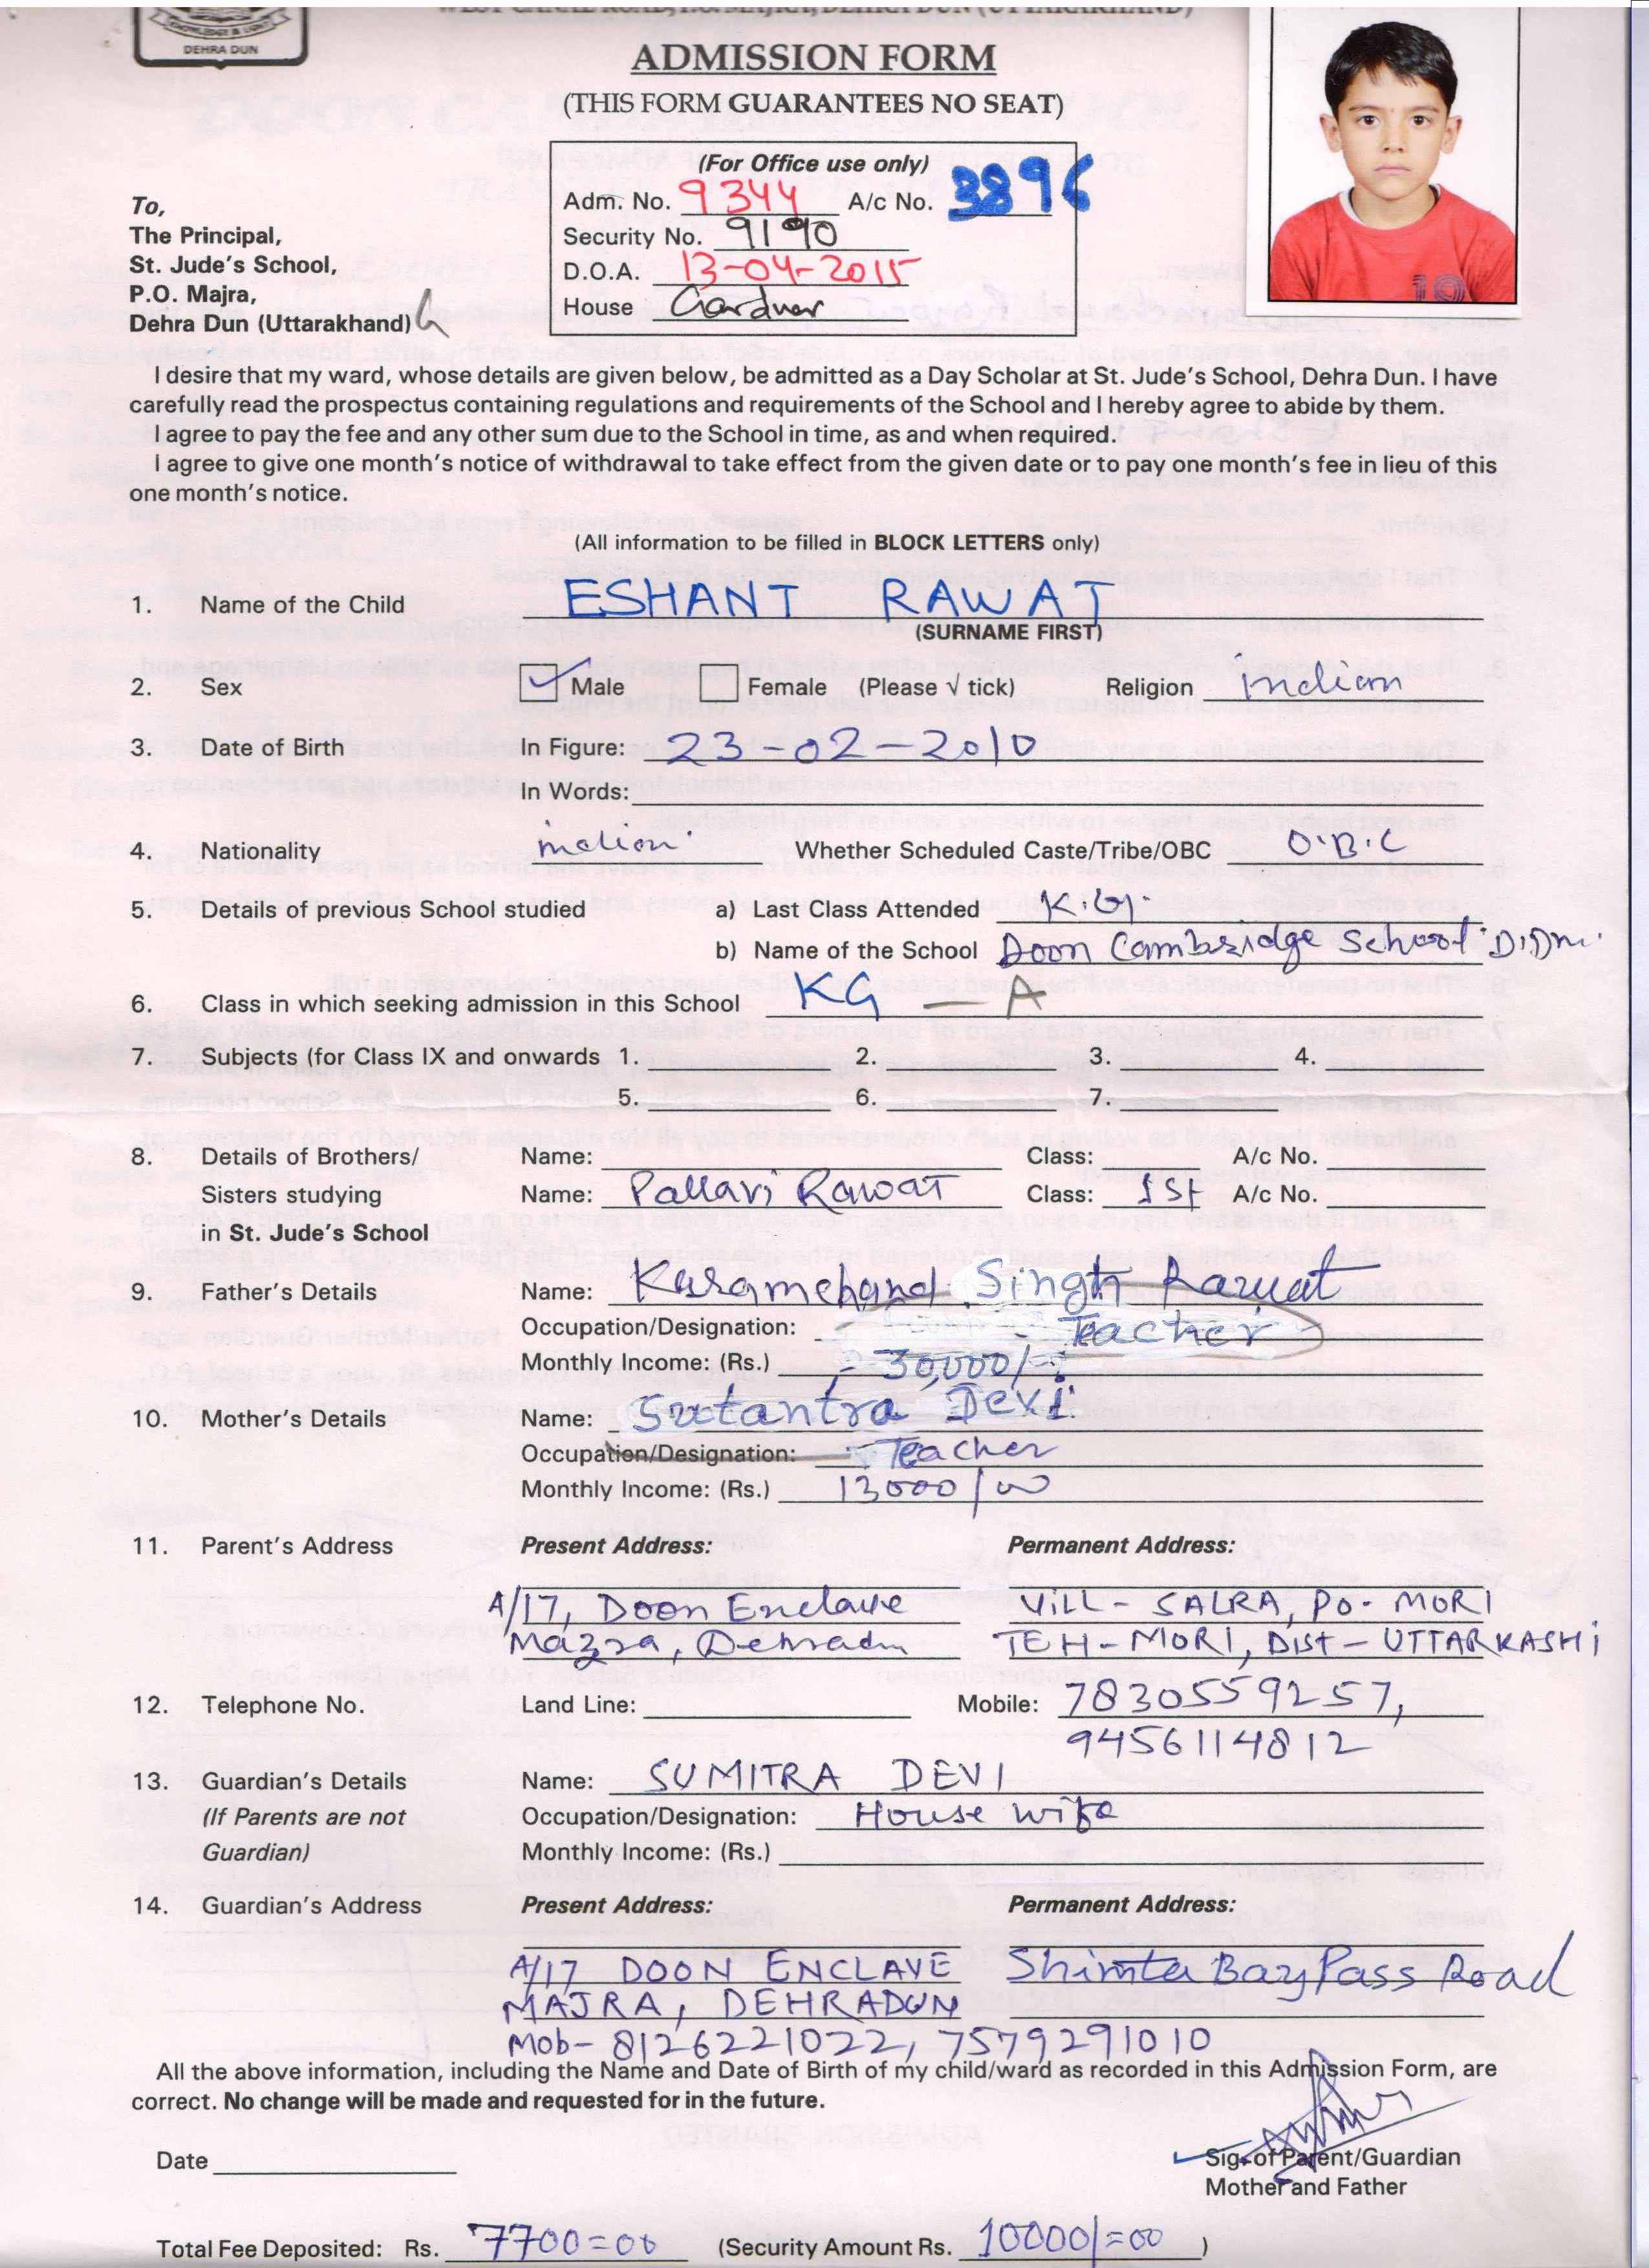 WEST CANAL ROAD, P.O. MAJRA, DEHRA DUN (UTTARAKHAND)
DEHRA DUN
ADMISSION FORM
(THIS FORM GUARANTEES NO SEAT)
(For Office use only)
Adm. No. 9344 A/c No. 3896
Security No. 9190
D.O.A. 13-04-2015
House Gardner
To,
The Principal,
St. Jude's School,
P.O. Majra,
Dehra Dun (Uttarakhand)
I desire that my ward, whose details are given below, be admitted as a Day Scholar at St. Jude's School, Dehra Dun. I have
carefully read the prospectus containing regulations and requirements of the School and I hereby agree to abide by them.
I agree to pay the fee and any other sum due to the School in time, as and when required.
I agree to give one month's notice of withdrawal to take effect from the given date or to pay one month's fee in lieu of this
one month's notice.
(All information to be filled in BLOCK LETTERS only)
1. Name of the Child ESHANT RAWAT
(SURNAME FIRST)
2. Sex Male Female (Please √ tick) Religion indian
3. Date of Birth In Figure: 23-02-2010
In Words:
4. Nationality indian Whether Scheduled Caste/Tribe/OBC O.B.C
5. Details of previous School studied a) Last Class Attended K.G.
b) Name of the School Doon Cambridge School D.Dn.
6. Class in which seeking admission in this School KG - A
7. Subjects (for Class IX and onwards 1. 2. 3. 4.
5. 6. 7.
8. Details of Brothers/ Name: Class: A/c No.
Sisters studying Name: Pallavi Rawat Class: 1st A/c No.
in St. Jude's School
9. Father's Details Name: Karamchand Singh Rawat
Occupation/Designation: Teacher
Monthly Income: (Rs.) 30,000/-
10. Mother's Details Name: Sutantra Devi
Occupation/Designation: Teacher
Monthly Income: (Rs.) 13000/00
11. Parent's Address Present Address: Permanent Address:
A/17, Doon Enclave VILL - SALRA, PO - MORI
Mazra, Dehradun TEH - MORI, Dist - UTTARKASHi
12. Telephone No. Land Line: Mobile: 7830559257,
9456114812
13. Guardian's Details Name: SUMITRA DEVI
(If Parents are not Occupation/Designation: House wife
Guardian) Monthly Income: (Rs.)
14. Guardian's Address Present Address: Permanent Address:
A/17 DOON ENCLAVE Shimla Bay Pass Road
MAJRA, DEHRADUN
Mob- 8126221022, 7579291010
All the above information, including the Name and Date of Birth of my child/ward as recorded in this Admission Form, are
correct. No change will be made and requested for in the future.
Date
Sig. of Parent/Guardian
Mother and Father
Total Fee Deposited: Rs. 7700=00 (Security Amount Rs. 10000/=00 )